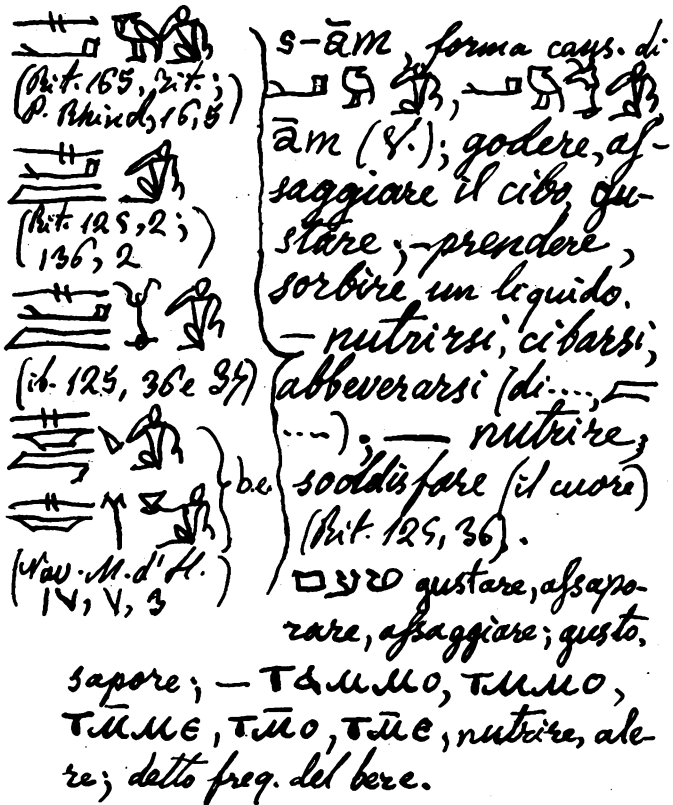 (Rit. 165, rit.;
P. Rhind, 16, 5)
(Rit. 125, 2;
136, 2)
(ib. 125, 36 e 37)
b.e.
(Nav. M. d'H.
IV, V, 3)
s-ām, forma caus. di
ām (V.); godere, aſ-
saggiare il cibo, gu-
stare; – prendere,
sorbire un liquido.
— nutrirsi, cibarsi,
abbeverarsi (di....,
....); — nutrire;
soddisfare (il cuore)
(Rit. 125, 36).
טעם gustare, aſsapo-
rare, aſsaggiare; gusto,
sapore; — ⲧⲁⲙⲙⲟ, ⲧⲙⲙⲟ,
ⲧⲙ̄ⲙⲉ, ⲧⲙ̄ⲟ, ⲧⲙ̄ⲉ, nutrire, ale-
re; detto freq. del bere.